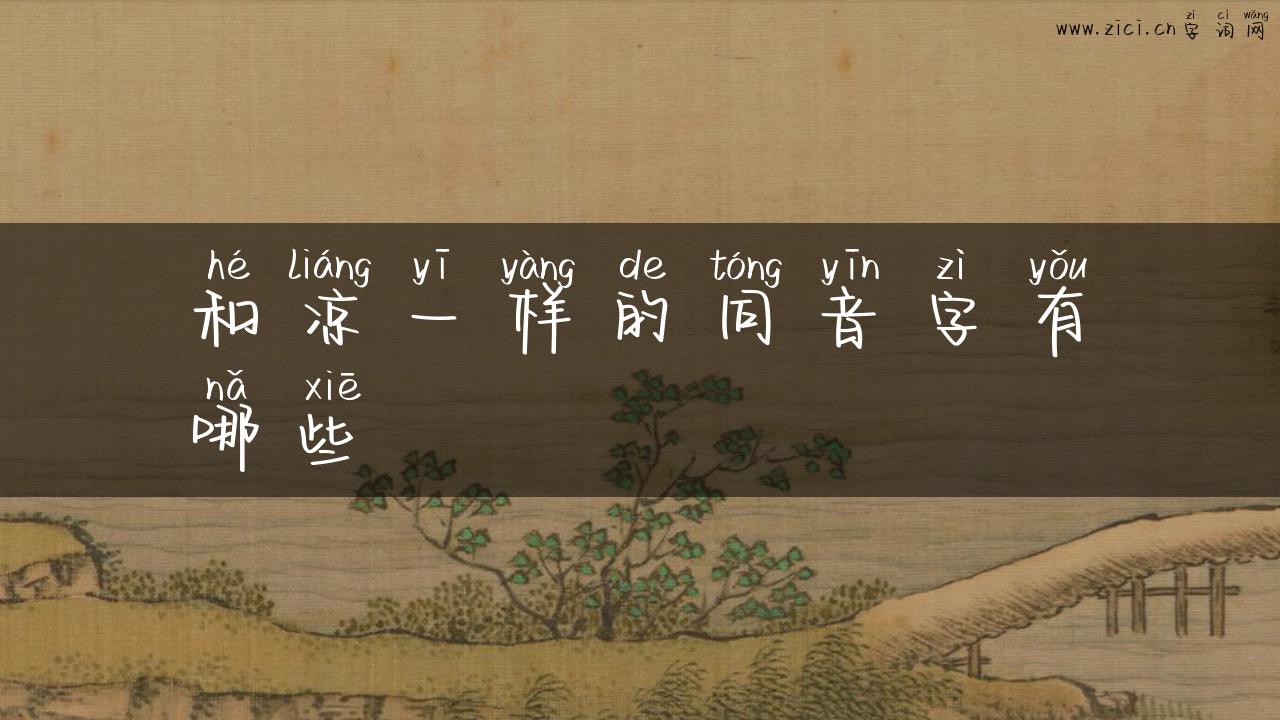 zì cí wǎng
www.zici.cn 字 词 网
hé liáng yī yàng de tóng yīn zì yǒu
和 凉 一 样 的 同 音 字 有
nǎ xiē
哪 些